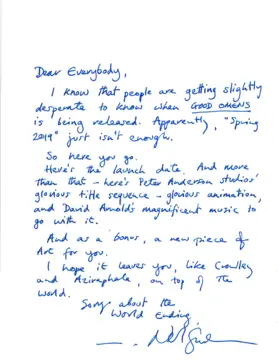 Dear Everybody,
I know that people are getting slightly
desperate to know when GOOD OMENS
is being released. Apparently, "Spring
2019" just isn't enough.
So here you go.
Here's the launch date. And more
than that – here's Peter Anderson studios'
glorious title sequence – glorious animation,
and David Arnold's magnificent music to
go with it.
And as a bonus, a new piece of
Art for you.
I hope it leaves you, like Crowley
and Aziraphale, on top of the
world.
Sorry about the
World Ending,